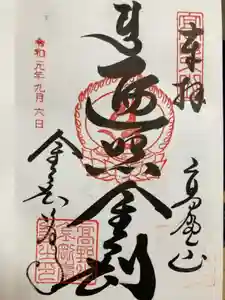 奉拝
高野山
遍照金剛
金剛峯寺
令和元年九月六日